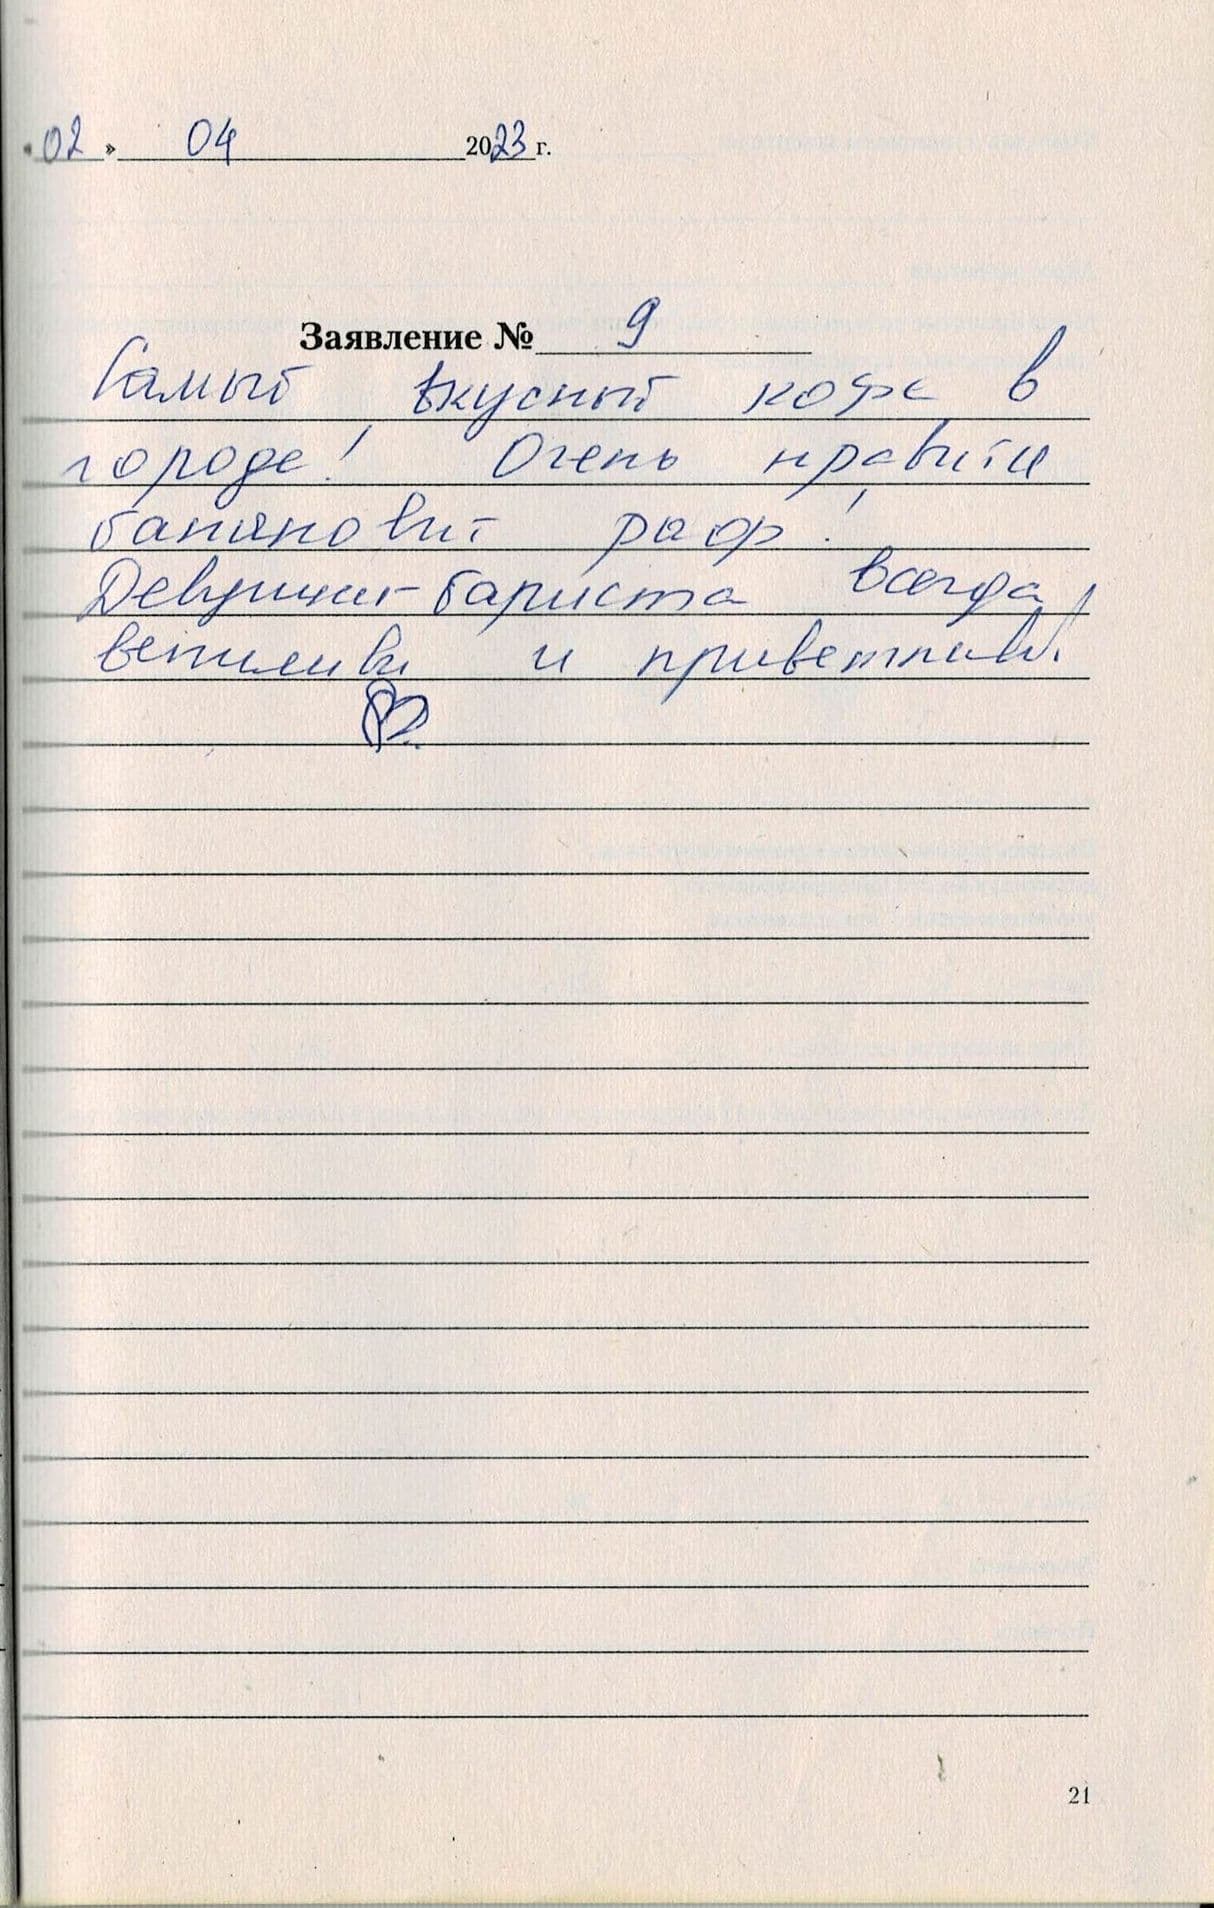 «02» 04 2023 г.
Заявление № 9
Самый вкусный кофе в
городе! Очень нравится
банановый раф!
Девушки-бариста всегда
вежливы и приветливы!
21